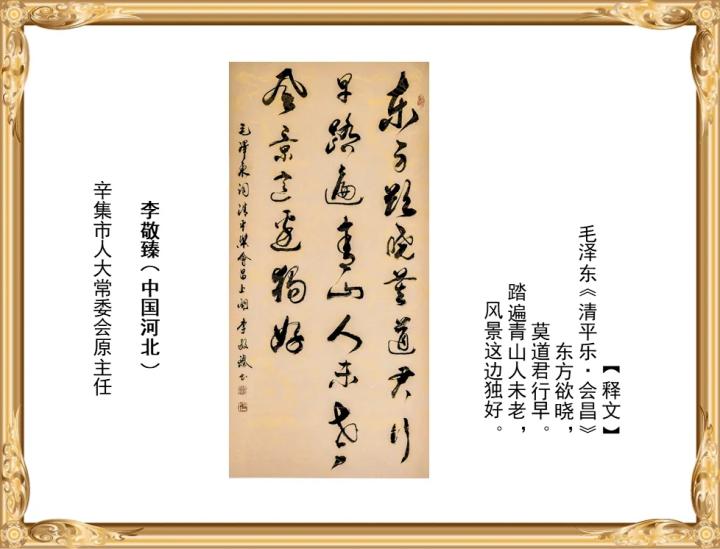 【释文】
毛泽东《清平乐·会昌》
东方欲晓，
莫道君行早。
踏遍青山人未老，
风景这边独好。
东方欲晓莫道君行
早踏遍青山人未老
风景這邊獨好
毛泽东词清平樂會昌上阕李敬臻书
李敬臻（中国河北）
辛集市人大常委会原主任